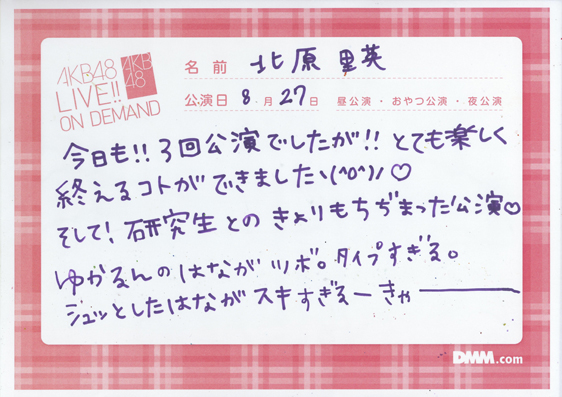 AKB48
LIVE!!
ON DEMAND
AKB
48
名前 北原里英
公演日 8月27日 昼公演・おやつ公演・夜公演
今日も!!3回公演でしたが!!とても楽しく
終えるコトができましたヽ(^o^)丿♡
そして!研究生とのきょりもちぢまった公演♡
ゆかるんのはながツボ。タイプすぎる。
ジュッとしたはながスキすぎるーきゃー
DMM.com